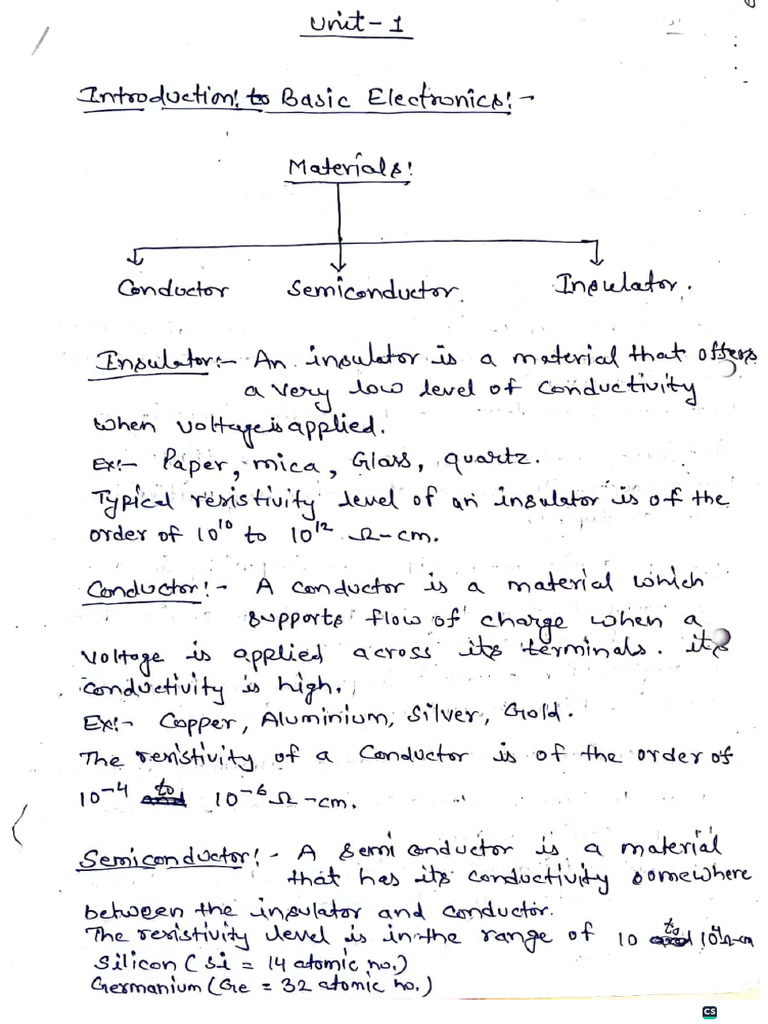 Unit-1
Introduction! to Basic Electronics!-
Materials!
Conductor Semiconductor. Insulator.
Insulator:- An insulator is a material that offers
a very low level of conductivity
when voltage is applied.
Ex:- Paper, mica, Glass, quartz.
Typical resistivity level of an insulator is of the
order of 10¹⁰ to 10¹² Ω-cm.
Conductor!- A conductor is a material which
supports flow of charge when a
voltage is applied across its terminals. its
conductivity is high.
Ex:- Copper, Aluminium, Silver, Gold.
The resistivity of a conductor is of the order of
10⁻⁴ to 10⁻⁶ Ω-cm.
Semiconductor!- A semi conductor is a material
that has its conductivity somewhere
between the insulator and conductor.
The resistivity level is in the range of 10 to 10⁴Ω-cm
Silicon (Si = 14 atomic no.)
Germanium (Ge = 32 atomic no.)
CS